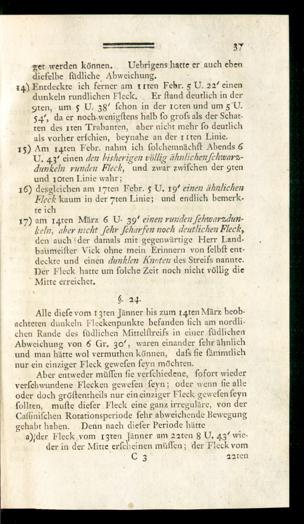 37
get werden können. Uebrigens hatte er auch eben
dieselbe südliche Abweichung.
14) Entdeckte ich ferner am 11ten Febr. 5 U. 22′ einen
dunkeln rundlichen Fleck. Er stand deutlich in der
9ten, um 5 U. 38′ schon in der 10ten und um 5 U.
54′, da er noch wenigstens halb so groß als der Schat-
ten des 1ten Trabanten, aber nicht mehr so deutlich
als vorher erschien, beynahe an der 11ten Linie.
15) Am 14ten Febr. nahm ich solchemnächst Abends 6
U. 43′ einen den bisherigen völlig ähnlichen schwarz-
dunkeln runden Fleck, und zwar zwischen der 9ten
und 10ten Linie wahr;
16) desgleichen am 17ten Febr. 5 U. 19′ einen ähnlichen
Fleck kaum in der 7ten Linie; und endlich bemerk-
te ich
17) am 14ten März 6 U. 39′ einen runden schwarzdun-
keln, aber nicht sehr scharfen noch deutlichen Fleck,
den auch der damals mit gegenwärtige Herr Land-
baumeister Vick ohne mein Erinnern von selbst ent-
deckte und einen dunklen Knoten des Streifs nannte.
Der Fleck hatte um solche Zeit noch nicht völlig die
Mitte erreichet.
§. 24.
Alle diese vom 13ten Jänner bis zum 14ten März beob-
achteten dunkeln Fleckenpunkte befanden sich am nordli-
chen Rande des südlichen Mittelstreifs in einer südlichen
Abweichung von 6 Gr. 30′, waren einander sehr ähnlich
und man hätte wol vermuthen können, dass sie sämmtlich
nur ein einziger Fleck gewesen seyn möchten.
Aber entweder müssen sie verschiedene, sofort wieder
verschwundene Flecken gewesen seyn; oder wenn sie alle
oder doch größtentheils nur ein einziger Fleck gewesen seyn
sollten, musste dieser Fleck eine ganz irreguläre, von der
Cassinischen Rotationsperiode sehr abweichende Bewegung
gehabt haben. Denn nach dieser Periode hätte
a) der Fleck vom 13ten Jänner am 22ten 8 U. 43′ wie-
der in der Mitte erscheinen müssen; der Fleck vom
C 3 22ten